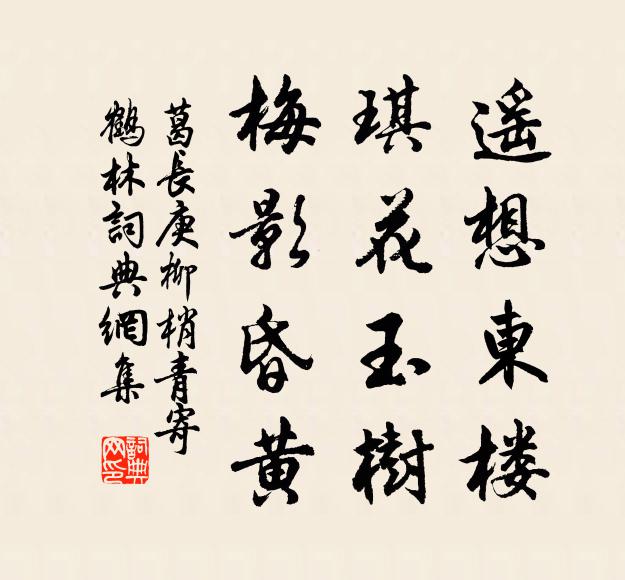 遥想東楼
琪花玉樹
梅影昏黄
葛長庚柳梢青寄
鶴林詞典網集
詞典网印